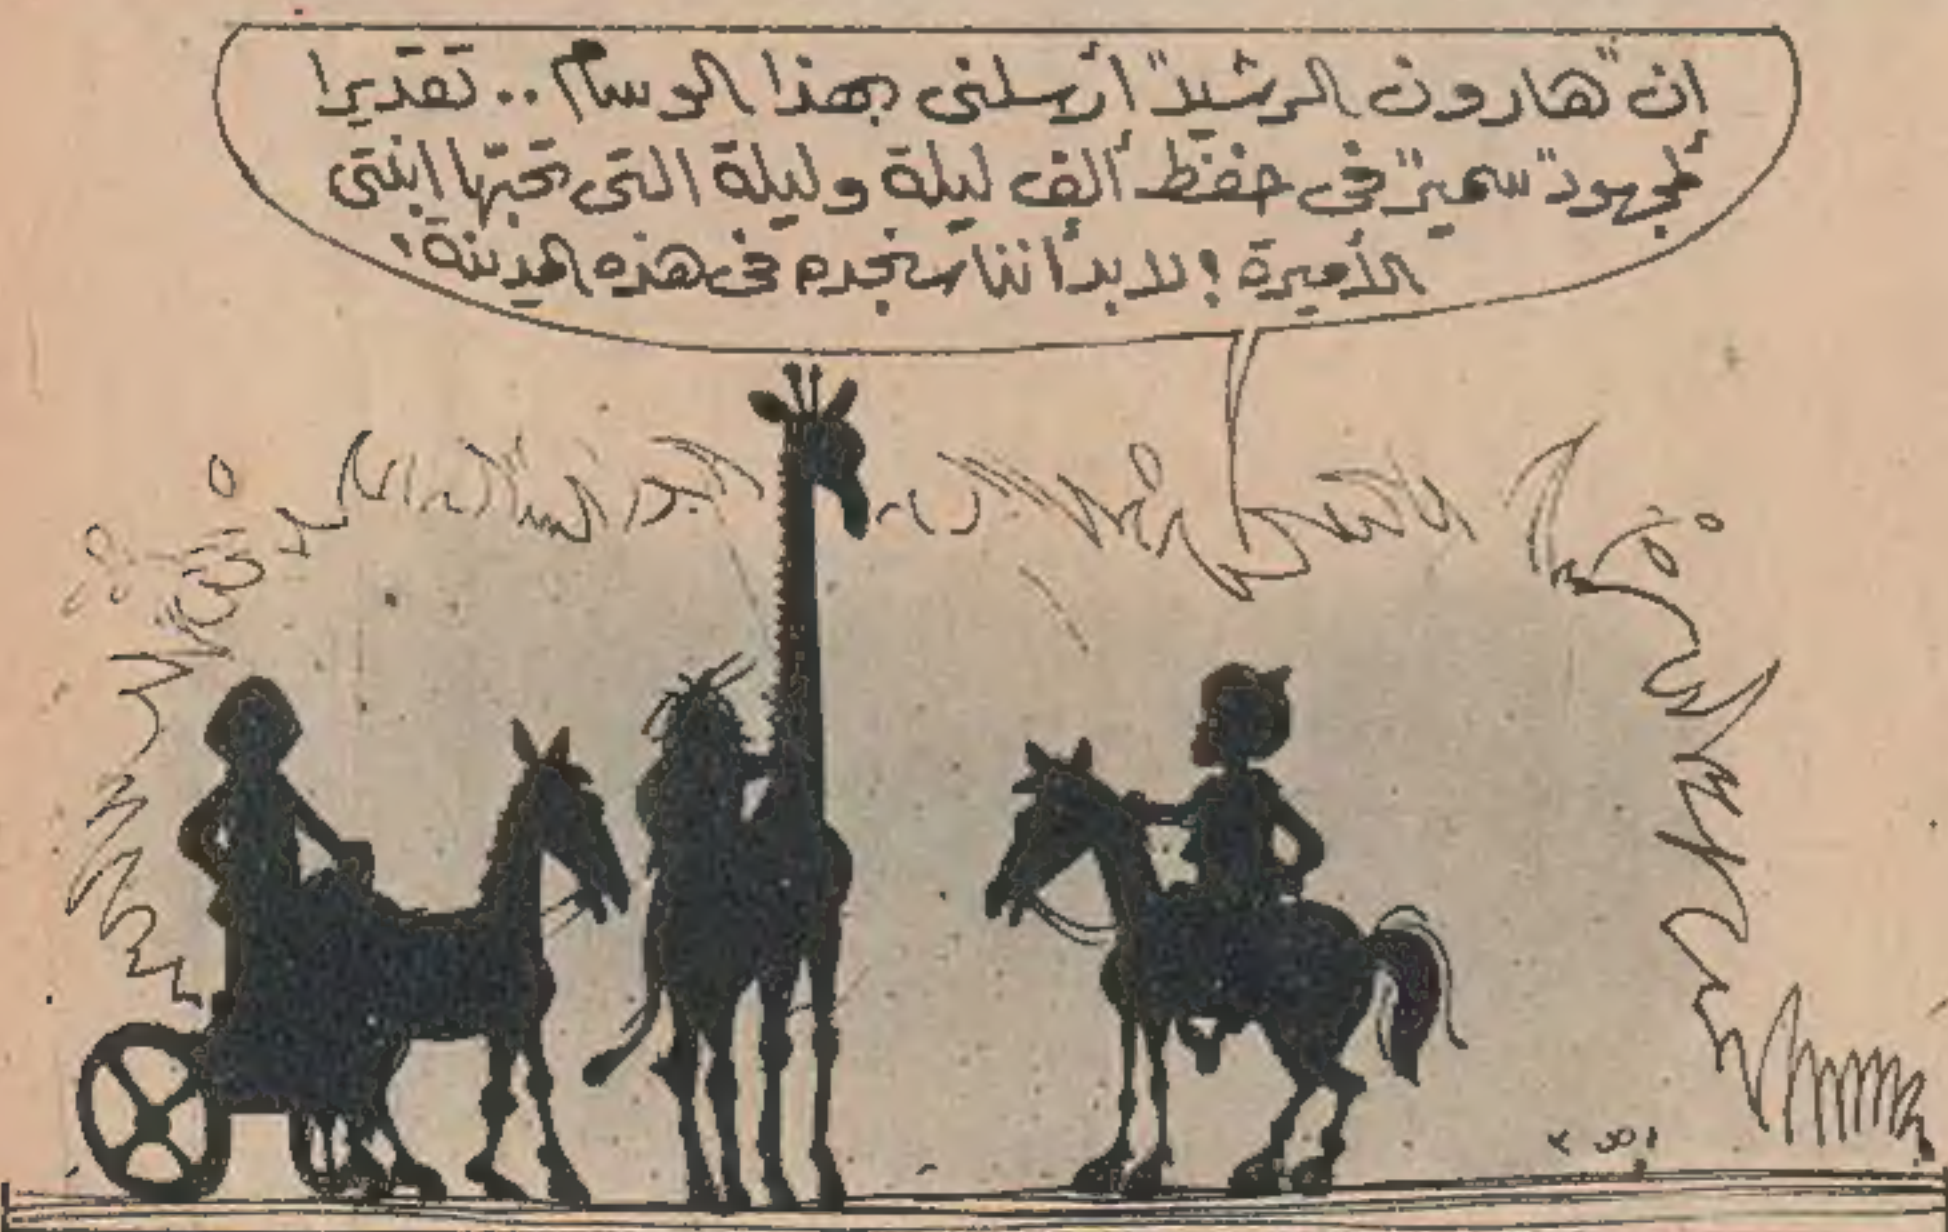 ان "هارون الرشيد" أرسلنى بهذا الوسام .. تقديرا
لمجهود "سمير" فى حفظ ألف ليلة وليلة التى تحبّها ابنتى
الأميرة ! لابد أننا سنجده فى هذه المدينة !